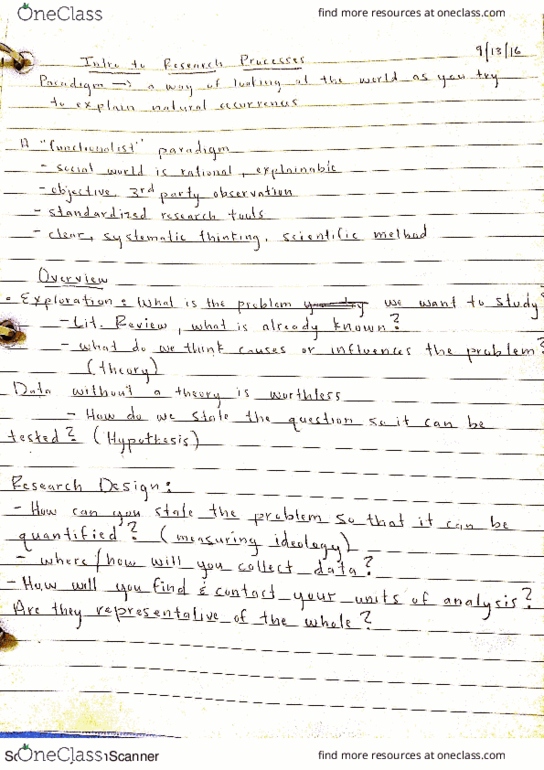 OneClass
find more resources at oneclass.com
9/13/16
Intro to Research Processes
Paradigm → a way of looking at the world as you try
to explain natural occurrences
A "functionalist" paradigm
- social world is rational, explainable
- objective, 3rd party observation
- standardized research tools
- clear, systematic thinking, scientific method
Overview
• Exploration: What is the problem we want to study?
- Lit. Review, what is already known?
- what do we think causes or influences the problem?
(theory)
Data without a theory is worthless
- How do we state the question so it can be
tested? (Hypothesis)
Research Design:
- How can you state the problem so that it can be
quantified? (measuring ideology)
- where/how will you collect data?
- How will you find & contact your units of analysis?
Are they representative of the whole?
OneClass
Scanner
find more resources at oneclass.com